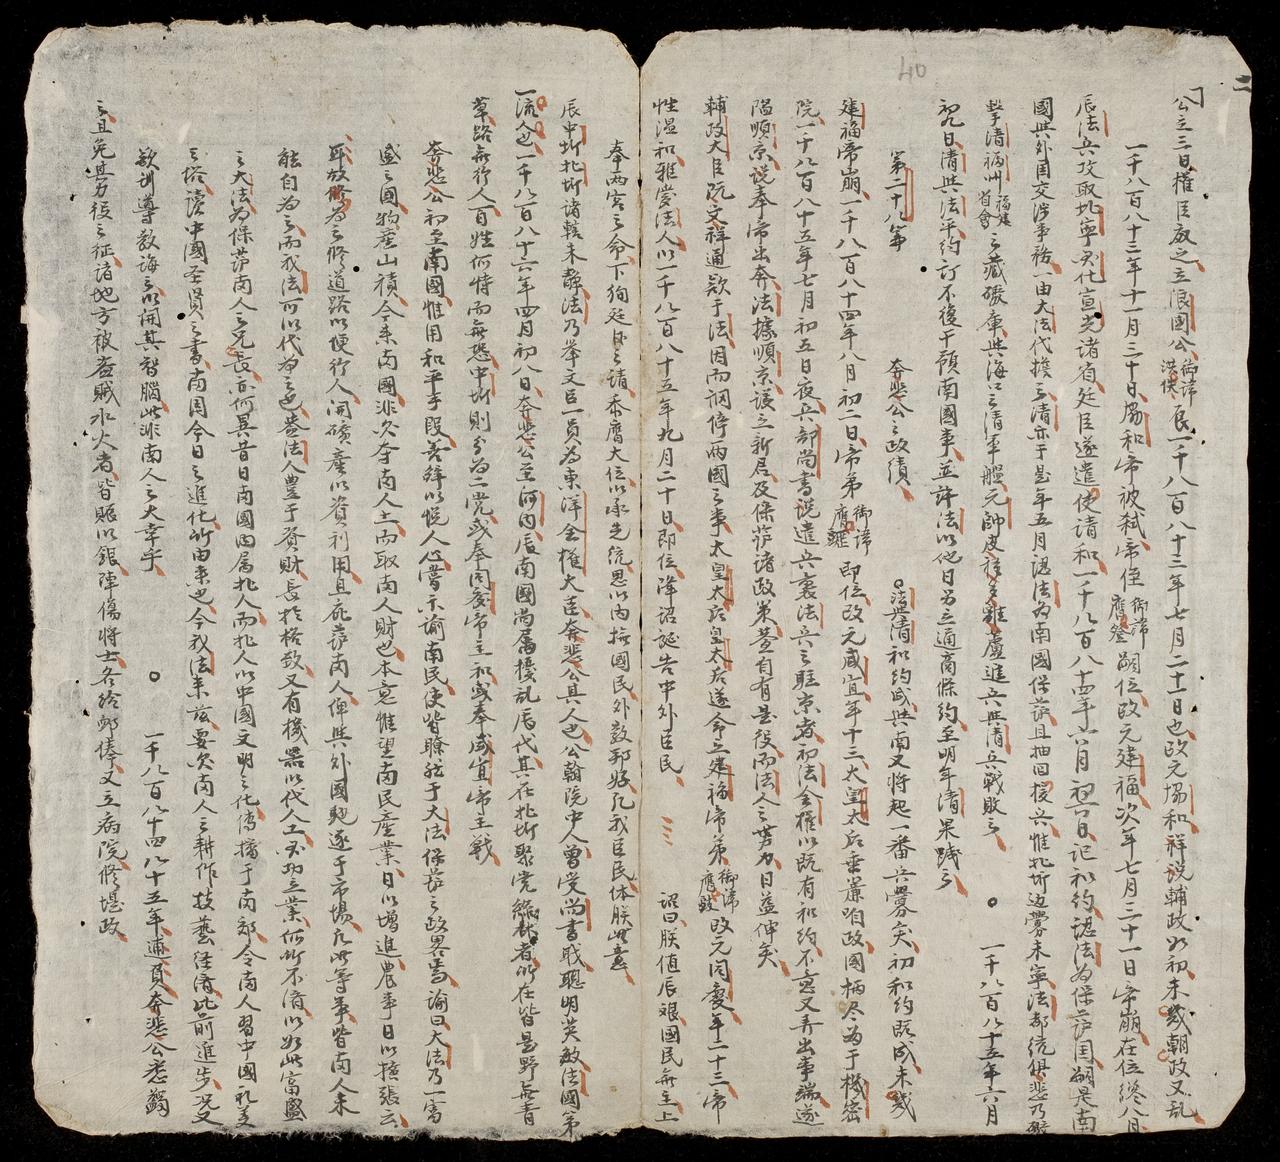 二
40
公立三日權臣廢之立浪國公御諱洪佚辰一千八百八十三年七月二十一日也改元協和祥說輔政如初未幾朝政又亂
一千八百八十三年十一月三十日協和帝被弒帝侄御諱膺登嗣位改元建福次年七月三十一日帝崩在位終八月
辰法兵攻取北寧興化宣光諸省廷臣遂遣使請和一千八百八十四年六月初六日記和約認法為保護国嗣是南
國與外國交涉事務一由大法代擔之清亦于是年五月認法為南國保護且抽回援兵惟北圻边釁未寧法都統俱悲乃
擊清福州福建省會之藏礮庫與海口之清軍艦元帥皮移多離盧進兵與清兵戰敗之 ○ 一千八百八十五年六月
初九日清與法平約訂不復干預南國事並許法以他日另立通商條約至明年清果踐之
第二十八筭 奔悲公之政績 ○與清和約成與南又將起一番兵釁矣初和約既成未幾
建福帝崩一千八百八十四年八月初二日帝弟御諱膺 即位改元咸宜年十三大皇太后垂簾咱政國柄尽為于機密
院一千八百八十五年七月初五日夜兵部尚書說遣兵襲法兵之駐京者初法全權以既有和約不意又弄出事端遂
陷順京說奉帝出奔法據順京議立新君及保護諸政策蓋自有是役而法人之勞力日益伸矣
輔政大臣阮文祥通欵于法因而調停兩國之事太皇太后皇太后遂命立建福帝弟御諱膺豉改元同慶年二十三帝
性溫和雅愛法人以一千八百八十五年九月二十日即位降詔誕告中外臣民 詔曰朕値辰艱國民無主上
奉兩宮之命下徇廷臣之請忝膺大位以承先統思以内撫國民外敦邦好凡我臣民体朕此意
辰中圻北圻諸轄未靜法乃举文臣一員為東洋全權大臣奔悲公其人也公翰院中人曾受尚書職聰明英敏法國第
一流人也一千八百八十六年四月初八日奔悲公至河内辰南國尚屬擾乱厝代其在北圻聚党綠林者所在皆是野無青
草路無行人百姓何恃而無恐中圻則分為二党或奉同慶帝主和或奉咸宜帝主戰
奔悲公初至南國惟用和平手段善辞以悅人心嘗示諭南民使皆瞭然于大法保護之政畧焉諭曰大法乃一富
盛之國物產山積今來南國非欲夺南人土而取南人財也本意惟望南民產業日以增進農事日以擴張云
耳故將為之修道路以便行人開礦產以資利用且庇護南人俾與外國馳逐于市場凡此等事皆南人未
能自為之而我法可以代為之也蓋法人豊于資財長於格致又有機器以代人工求功立業何所不濟以如此富盛
之大法為保護南人之兄長亦何異昔日南國内屬北人而北人以中國文明之化傳播于南郡令南人習中國礼義
之塔讀中國圣賢之書南国今日之進化所由来也今我法來茲要欲南人之耕作技藝経濟此前進步况又
欲訓導教誨之以開其智腦此非南人之大幸乎 ○ 一千八百八十四八十五年逋員奔悲公悉蠲
之且免其勞役之征諸地方被盗賊水火者皆賑以銀陣傷將士各给卹俸又立病院修堤政